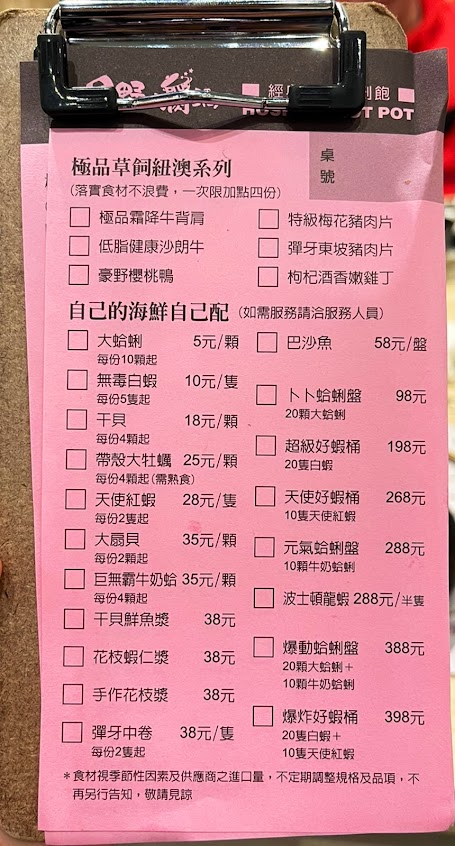 經
刷飽
HOT POT
桌
號
極品草飼紐澳系列
(落實食材不浪費，一次限加點四份)
極品霜降牛背肩
特級梅花豬肉片
低脂健康沙朗牛
彈牙東坡豬肉片
豪野櫻桃鴨
枸杞酒香嫩雞丁
自己的海鮮自己配(如需服務請洽服務人員)
大蛤蜊 5元/顆
每份10顆起
無毒白蝦 10元/隻
每份5隻起
干貝 18元/顆
每份4顆起
帶殼大牡蠣 25元/顆
每份4顆起(需熟食)
天使紅蝦 28元/隻
每份2隻起
大扇貝 35元/顆
每份2顆起
巨無霸牛奶蛤 35元/顆
每份4顆起
干貝鮮魚漿 38元
花枝蝦仁漿 38元
手作花枝漿 38元
彈牙中卷 38元/隻
每份2隻起
巴沙魚 58元/盤
卜卜蛤蜊盤 98元
20顆大蛤蜊
超級好蝦桶 198元
20隻白蝦
天使好蝦桶 268元
10隻天使紅蝦
元氣蛤蜊盤 288元
10顆牛奶蛤蜊
波士頓龍蝦 288元/半隻
爆動蛤蜊盤 388元
20顆大蛤蜊+
10顆牛奶蛤蜊
爆炸好蝦桶 398元
20隻白蝦+
10隻天使紅蝦
*食材視季節性因素及供應商之進口量，不定期調整規格及品項，不
再另行告知，敬請見諒